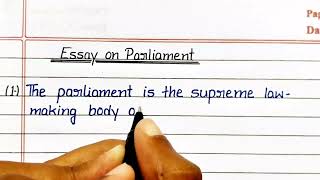 Pa
Da
Essay on Parliament
(1.) The parliament is the supreme law-
making body o